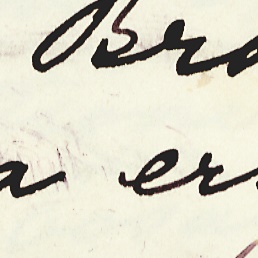 Bra
a er